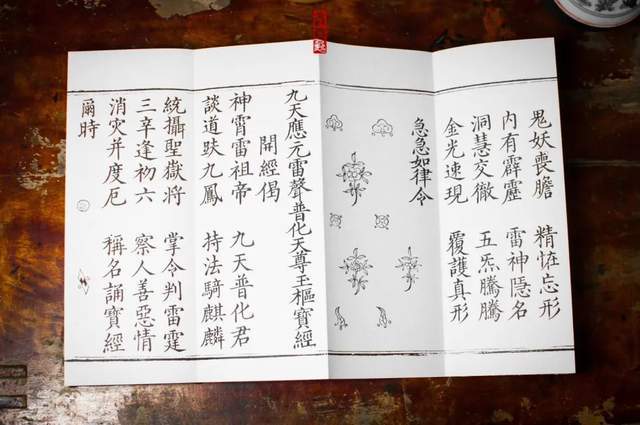 鬼妖喪膽 精恠忘形
內有霹靂 雷神隠名
洞慧交徹 五炁騰騰
金光速現 覆護真形
急急如律令
九天應元雷聲普化天尊玉樞寶經
開經偈
神霄雷祖帝 九天普化君
談道趺九鳳 持法騎麒麟
統攝聖嶽將 掌令判雷霆
三辛逢初六 察人善惡情
消灾并度厄 稱名誦寶經
爾時